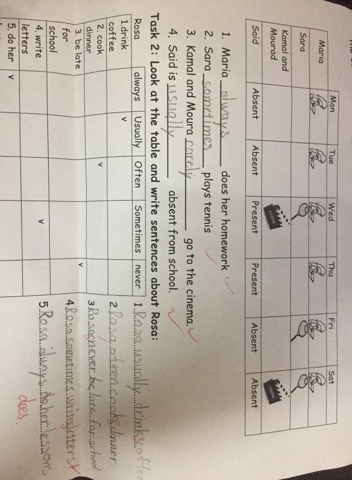 Mon Tue Wed Thu Fri Sat
Maria
Sara
Kamal and
Mourad
Said Absent Absent Present Present Absent Absent
1. Maria always does her homework
2. Sara sometimes plays tennis
3. Kamal and Moura rarely go to the cinema.
4. Said is usually absent from school.
Task 2: Look at the table and write sentences about Rosa:
Rosa always Usually Often Sometimes never
1.drink
coffee v
2. cook
dinner v
3. be late
for v
school
4. write
letters v
5. do her v
1 Rosa usually drinks
2 Rosa often cooks dinner
3 Rosa never be late for school
4 Rosa sometimes letters
5 Rosa always do her lessons
does